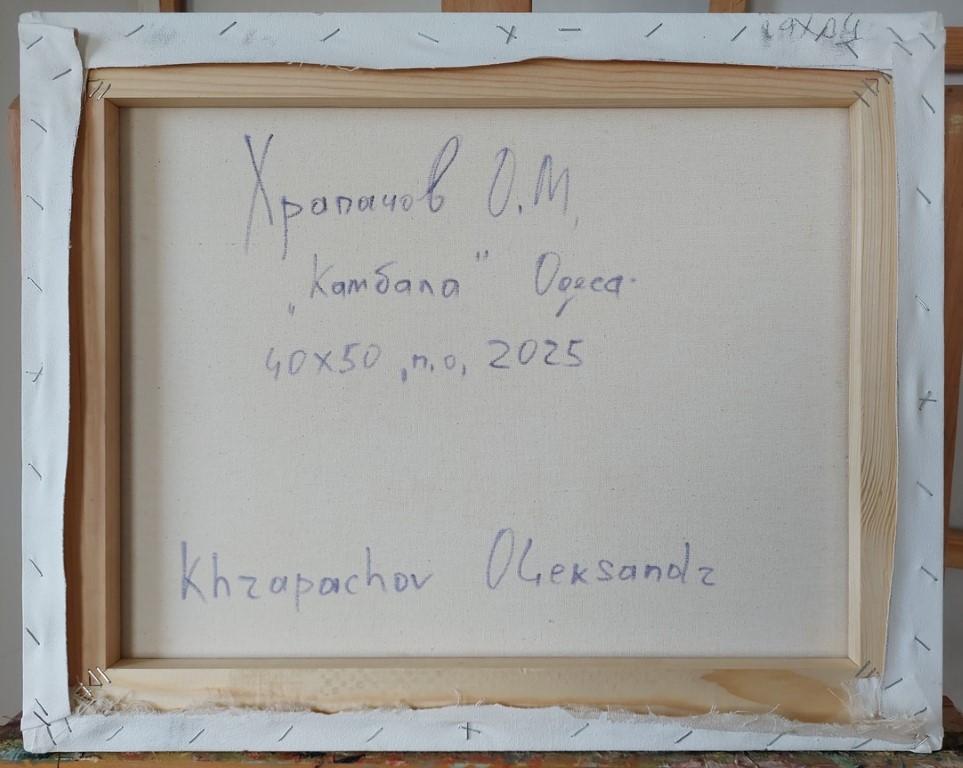 Храпачов О.М.
„Камбала" Одеса.
40х50, п.о, 2025
Khrapachov Oleksandr